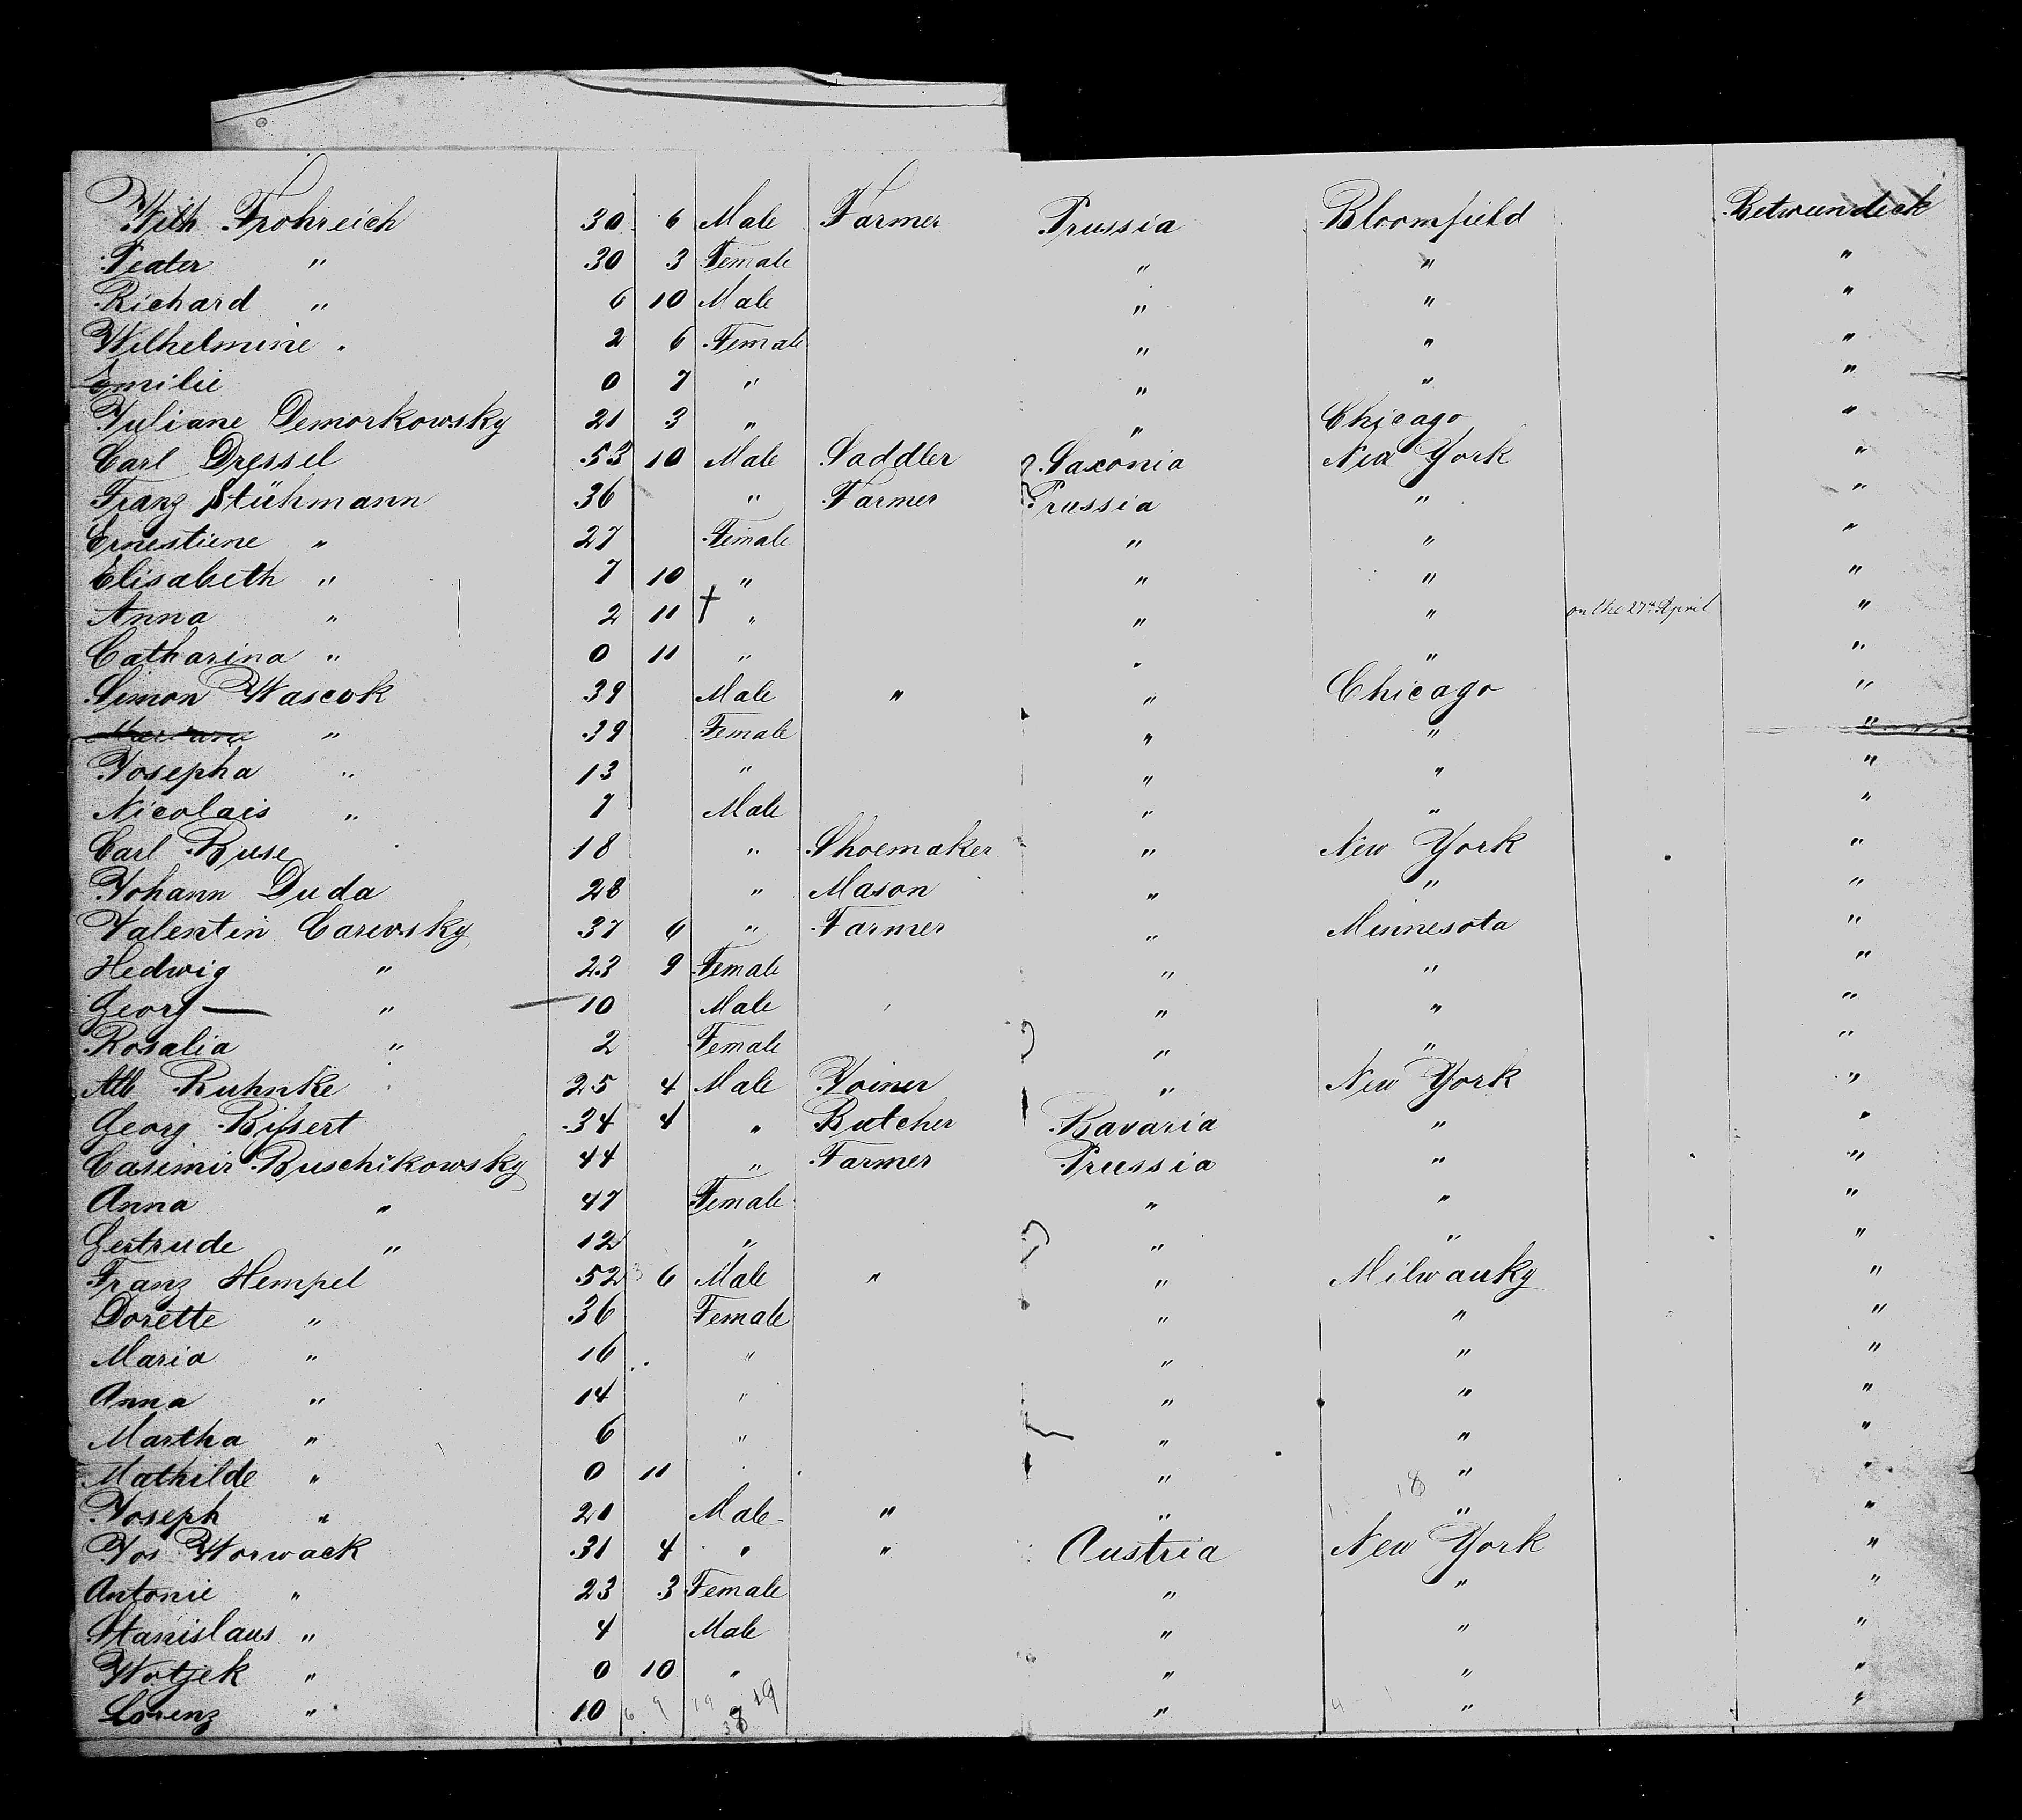 Wilh Frohreich 30 6 Male Farmer Prussia Bloomfield Betweendeck
Peater " 30 3 Female " " "
Richard " 6 10 Male " " "
Wilhelmine " 2 6 Female " " "
Emilie 0 7 " " " "
Juliane Demorkowsky 21 3 " " Chicago "
Carl Dressel 53 10 Male Saddler Saxonia New York "
Franz Stühmann 36 " Farmer Prussia " "
Ernestiene " 27 Female " " "
Elisabeth " 7 10 " " " "
Anna " 2 11 † " " " on the 27th April "
Catharina " 0 11 " " " "
Simon Wascok 39 Male " " Chicago "
" 39 Female " " "
Josepha " 13 " " " "
Nicolais " 7 Male " " "
Carl Ruse 18 " Shoemaker " New York "
Johann Duda 28 " Mason " " "
Valentin Carewsky 37 6 " Farmer " Minnesota "
Hedwig " 23 9 Female " " "
Georg " 10 Male " " "
Rosalia " 2 Female " " "
Alb Ruhnke 25 4 Male Joiner " New York "
Georg Bissert 34 4 " Butcher Bavaria " "
Casimir Buschikowsky 44 " Farmer Prussia " "
Anna " 47 Female " " "
Gertrude " 12 " " " "
Franz Hempel 52 6 Male " " Milwauky "
Dorette " 36 Female " " "
Maria " 16 " " " "
Anna " 14 " " " "
Martha " 6 " " " "
Mathilde " 0 11 " " " "
Joseph " 21 Male " " " "
Jos Worwack 31 4 " " Austria New York "
Antonie " 23 3 Female " " "
Stanislaus " 4 Male " " "
Wotjek " 0 10 " " " "
Lorenz " 10 " " "